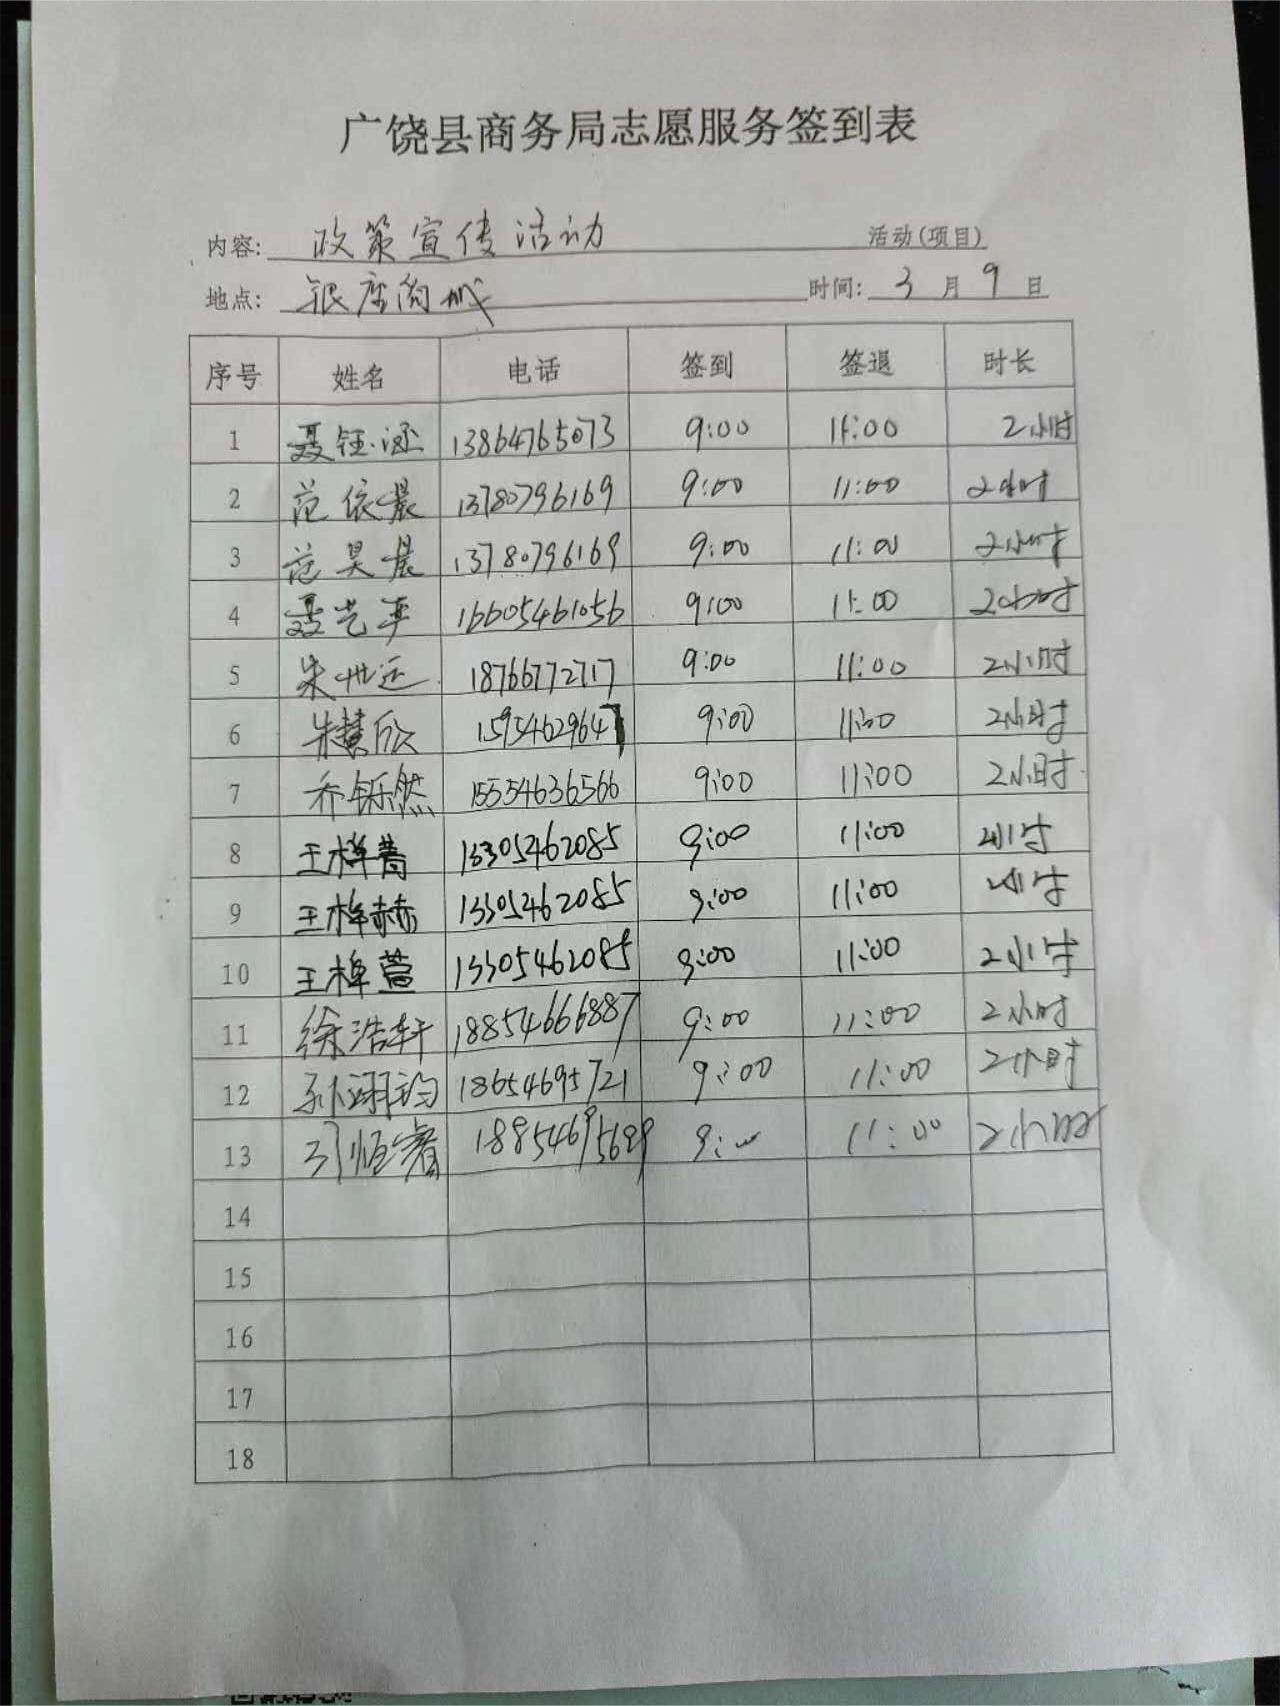 广饶县商务局志愿服务签到表
内容: 政策宣传活动 活动(项目)
地点: 银座商城 时间: 3 月 9 日
序号 姓名 电话 签到 签退 时长
1 聂钰涵 13864765073 9:00 11:00 2小时
2 范依晨 13780796169 9:00 11:00 2小时
3 范昊晨 13780796169 9:00 11:00 2小时
4 聂艺 16605461056 9:00 11:00 2小时
5 朱世运 18766772717 9:00 11:00 2小时
6 朱慧欣 15954629647 9:00 11:00 2小时
7 乔铄然 15554636566 9:00 11:00 2小时
8 王梓菁 13305462085 9:00 11:00 2小时
9 王梓赫 13305462085 9:00 11:00 2小时
10 王梓萱 13305462085 9:00 11:00 2小时
11 徐浩轩 18854666887 9:00 11:00 2小时
12 孙翊钧 18654695721 9:00 11:00 2小时
13 恒睿 9:00 11:00 2小时
14
15
16
17
18